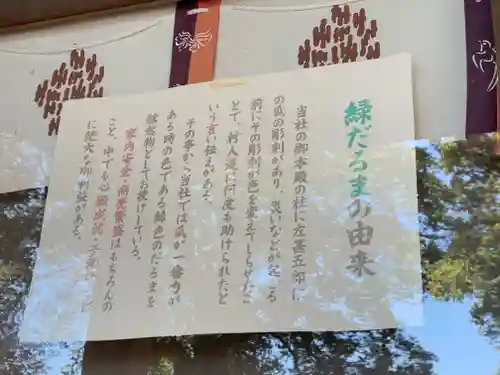 緑だるまの由来
当社の御本殿の柱に左甚五郎に
の瓜の彫刻があり、災いなどが起こる
前にその彫刻が色を変えてしらせたこ
とで、村人達に何度も助けられたと
いう言い伝えがある。
その事から当社では瓜が一番力が
ある時の色である緑色のだるまを
縁起物としてお授けしている。
家内安全、商売繁盛はもちろんの
こと、中でも心願成就、
に絶大な御利益がある。